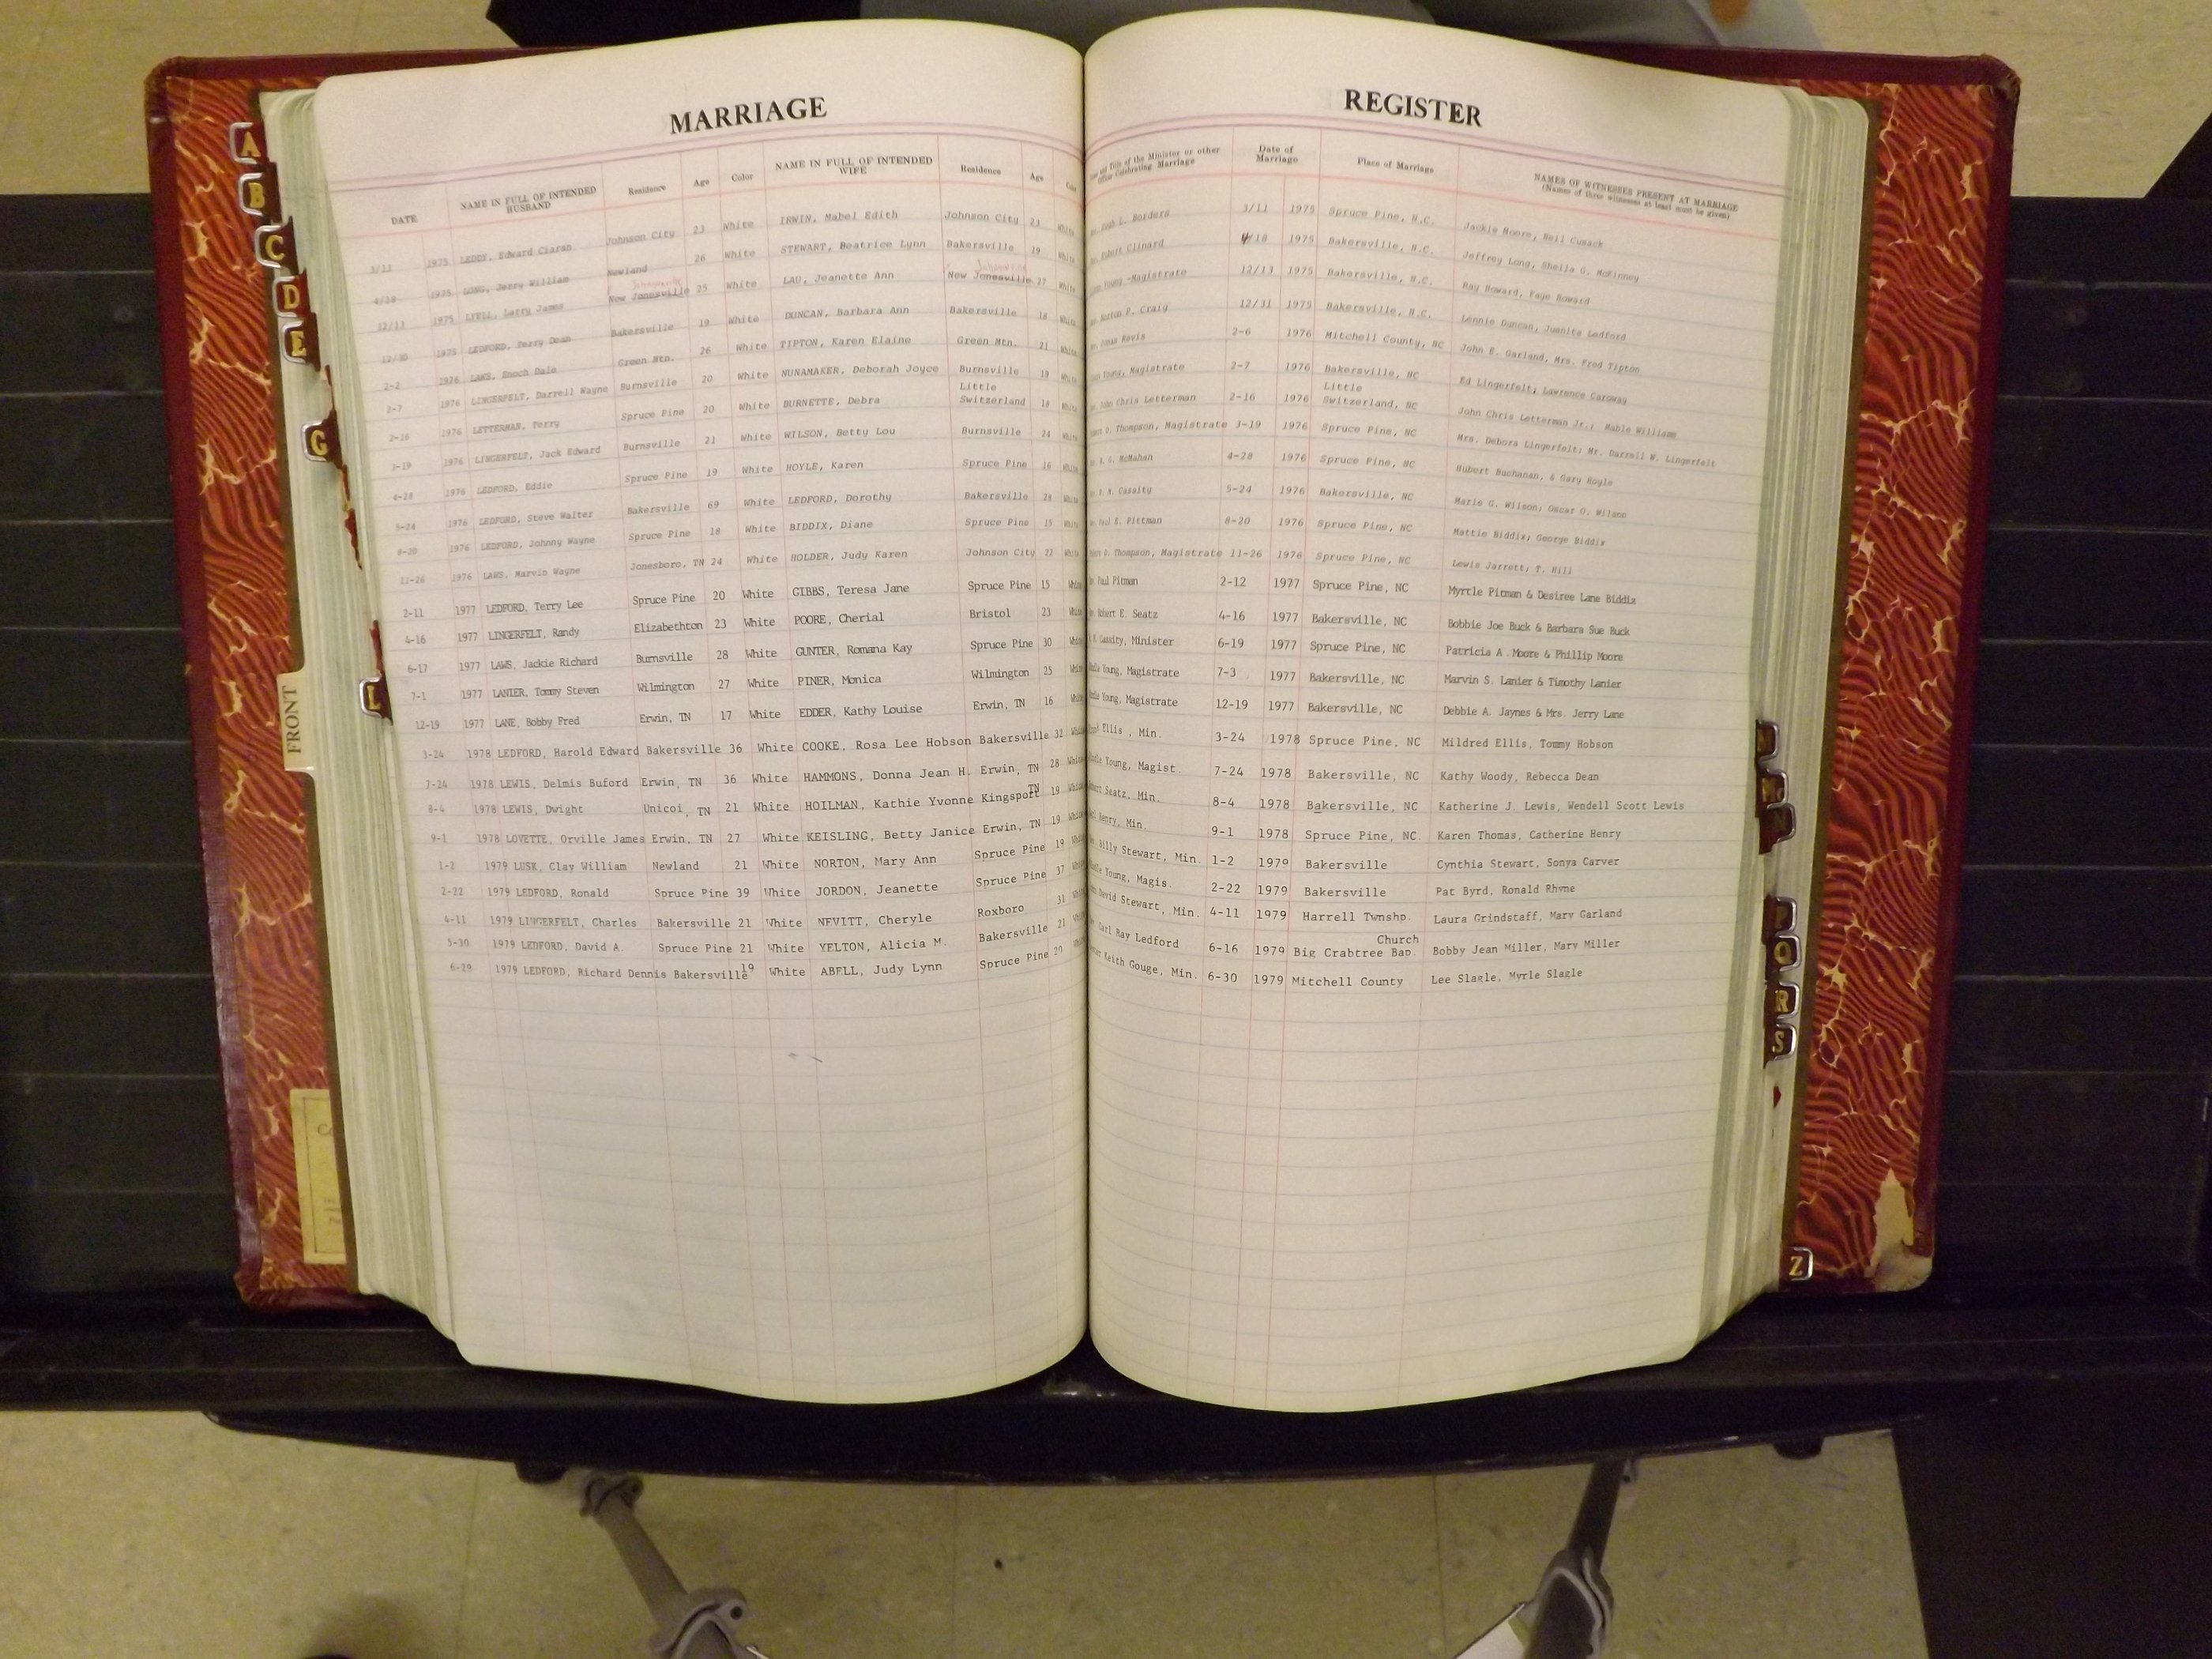 MARRIAGE REGISTER
DATE NAME IN FULL OF INTENDED HUSBAND Residence Age Color NAME IN FULL OF INTENDED WIFE Residence Age Color and Title of the Minister or other Officer Celebrating Marriage Date of Marriage Place of Marriage NAMES OF WITNESSES PRESENT AT MARRIAGE (Names of three witnesses at least must be given)
3/11 1975 LEDDY, Edward Ciaran Johnson City 23 White IRWIN, Mabel Edith Johnson City 23 White L. Borders 3/11 1975 Spruce Pine, N.C. Jackie Moore, Neil Cusack
4/18 1975 LONG, Jerry William Newland 26 White STEWART, Beatrice Lynn Bakersville 19 White Robert Clinard 4/18 1975 Bakersville, N.C. Jeffrey Long, Sheila G. McKinney
12/13 1975 LYELL, Larry James New Jonesville 25 White LAU, Jeanette Ann New Jonesville 27 White Young -Magistrate 12/13 1975 Bakersville, N.C. Ray Howard, Faye Howard
12/30 1975 LEDFORD, Terry Dean Bakersville 19 White DUNCAN, Barbara Ann Bakersville 18 White P. Craig 12/31 1975 Bakersville, N.C. Lennie Duncan, Juanita Ledford
2-2 1976 LAWS, Enoch Dale Green Mtn. 26 White TIPTON, Karen Elaine Green Mtn. 21 White Revis 2-6 1976 Mitchell County, NC John E. Garland, Mrs. Fred Tipton
2-7 1976 LINGERFELT, Darrell Wayne Burnsville 20 White NUNAMAKER, Deborah Joyce Burnsville 19 White Young, Magistrate 2-7 1976 Bakersville, NC Ed Lingerfelt; Lawrence Caroway
2-16 1976 LETTERMAN, Terry Spruce Pine 20 White BURNETTE, Debra Little Switzerland 18 White John Chris Letterman 2-16 1976 Little Switzerland, NC John Chris Letterman Jr.; Mable Williams
3-19 1976 LINGERFELT, Jack Edward Burnsville 21 White WILSON, Betty Lou Burnsville 24 White D. Thompson, Magistrate 3-19 1976 Spruce Pine, NC Mrs. Debora Lingerfelt; Mr. Darrell W. Lingerfelt
4-28 1976 LEDFORD, Eddie Spruce Pine 19 White HOYLE, Karen Spruce Pine 16 White McMahan 4-28 1976 Spruce Pine, NC Hubert Buchanan, & Gary Hoyle
5-24 1976 LEDFORD, Steve Walter Bakersville 69 White LEDFORD, Dorothy Bakersville 28 White Cassity 5-24 1976 Bakersville, NC Marie G. Wilson; Oscar O. Wilson
8-20 1976 LEDFORD, Johnny Wayne Spruce Pine 18 White BIDDIX, Diane Spruce Pine 15 White Paul E. Pittman 8-20 1976 Spruce Pine, NC Mattie Biddix; George Biddix
11-26 1976 LAWS, Marvin Wayne Jonesboro, TN 24 White HOLDER, Judy Karen Johnson City 22 White D. Thompson, Magistrate 11-26 1976 Spruce Pine, NC Lewis Jarrett; T. Hill
2-11 1977 LEDFORD, Terry Lee Spruce Pine 20 White GIBBS, Teresa Jane Spruce Pine 15 White Paul Pitman 2-12 1977 Spruce Pine, NC Myrtle Pitman & Desiree Lane Biddix
4-16 1977 LINGERFELT, Randy Elizabethton 23 White POORE, Cherial Bristol 23 White Robert E. Seatz 4-16 1977 Bakersville, NC Bobbie Joe Buck & Barbara Sue Buck
6-17 1977 LAWS, Jackie Richard Burnsville 28 White GUNTER, Romana Kay Spruce Pine 30 White Cassity, Minister 6-19 1977 Spruce Pine, NC Patricia A. Moore & Phillip Moore
7-1 1977 LANIER, Tommy Steven Wilmington 27 White PINER, Monica Wilmington 25 White Young, Magistrate 7-3 1977 Bakersville, NC Marvin S. Lanier & Timothy Lanier
12-19 1977 LANE, Bobby Fred Erwin, TN 17 White EDDER, Kathy Louise Erwin, TN 16 White Young, Magistrate 12-19 1977 Bakersville, NC Debbie A. Jaynes & Mrs. Jerry Lane
3-24 1978 LEDFORD, Harold Edward Bakersville 36 White COOKE, Rosa Lee Hobson Bakersville 32 White Ellis, Min. 3-24 1978 Spruce Pine, NC Mildred Ellis, Tommy Hobson
7-24 1978 LEWIS, Delmis Buford Erwin, TN 36 White HAMMONS, Donna Jean H. Erwin, TN 28 White Young, Magist. 7-24 1978 Bakersville, NC Kathy Woody, Rebecca Dean
8-4 1978 LEWIS, Dwight Unicoi, TN 21 White HOILMAN, Kathie Yvonne Kingsport TN 19 White Seatz, Min. 8-4 1978 Bakersville, NC Katherine J. Lewis, Wendell Scott Lewis
9-1 1978 LOVETTE, Orville James Erwin, TN 27 White KEISLING, Betty Janice Erwin, TN 19 White Henry, Min. 9-1 1978 Spruce Pine, NC. Karen Thomas, Catherine Henry
1-2 1979 LUSK, Clay William Newland 21 White NORTON, Mary Ann Spruce Pine 19 White Billy Stewart, Min. 1-2 1979 Bakersville Cynthia Stewart, Sonya Carver
2-22 1979 LEDFORD, Ronald Spruce Pine 39 White JORDON, Jeanette Spruce Pine 37 White Young, Magis. 2-22 1979 Bakersville Pat Byrd, Ronald Rhyne
4-11 1979 LINGERFELT, Charles Bakersville 21 White NEVITT, Cheryle Roxboro 31 White David Stewart, Min. 4-11 1979 Harrell Twnshp. Laura Grindstaff, Mary Garland
5-30 1979 LEDFORD, David A. Spruce Pine 21 White YELTON, Alicia M. Bakersville 21 White Carl Ray Ledford 6-16 1979 Big Crabtree Bap. Church Bobby Jean Miller, Mary Miller
6-29 1979 LEDFORD, Richard Dennis Bakersville 19 White ABELL, Judy Lynn Spruce Pine 20 White Keith Gouge, Min. 6-30 1979 Mitchell County Lee Slagle, Myrle Slagle
A
B
C
D
E
G
L
FRONT
Q
R
S
Z